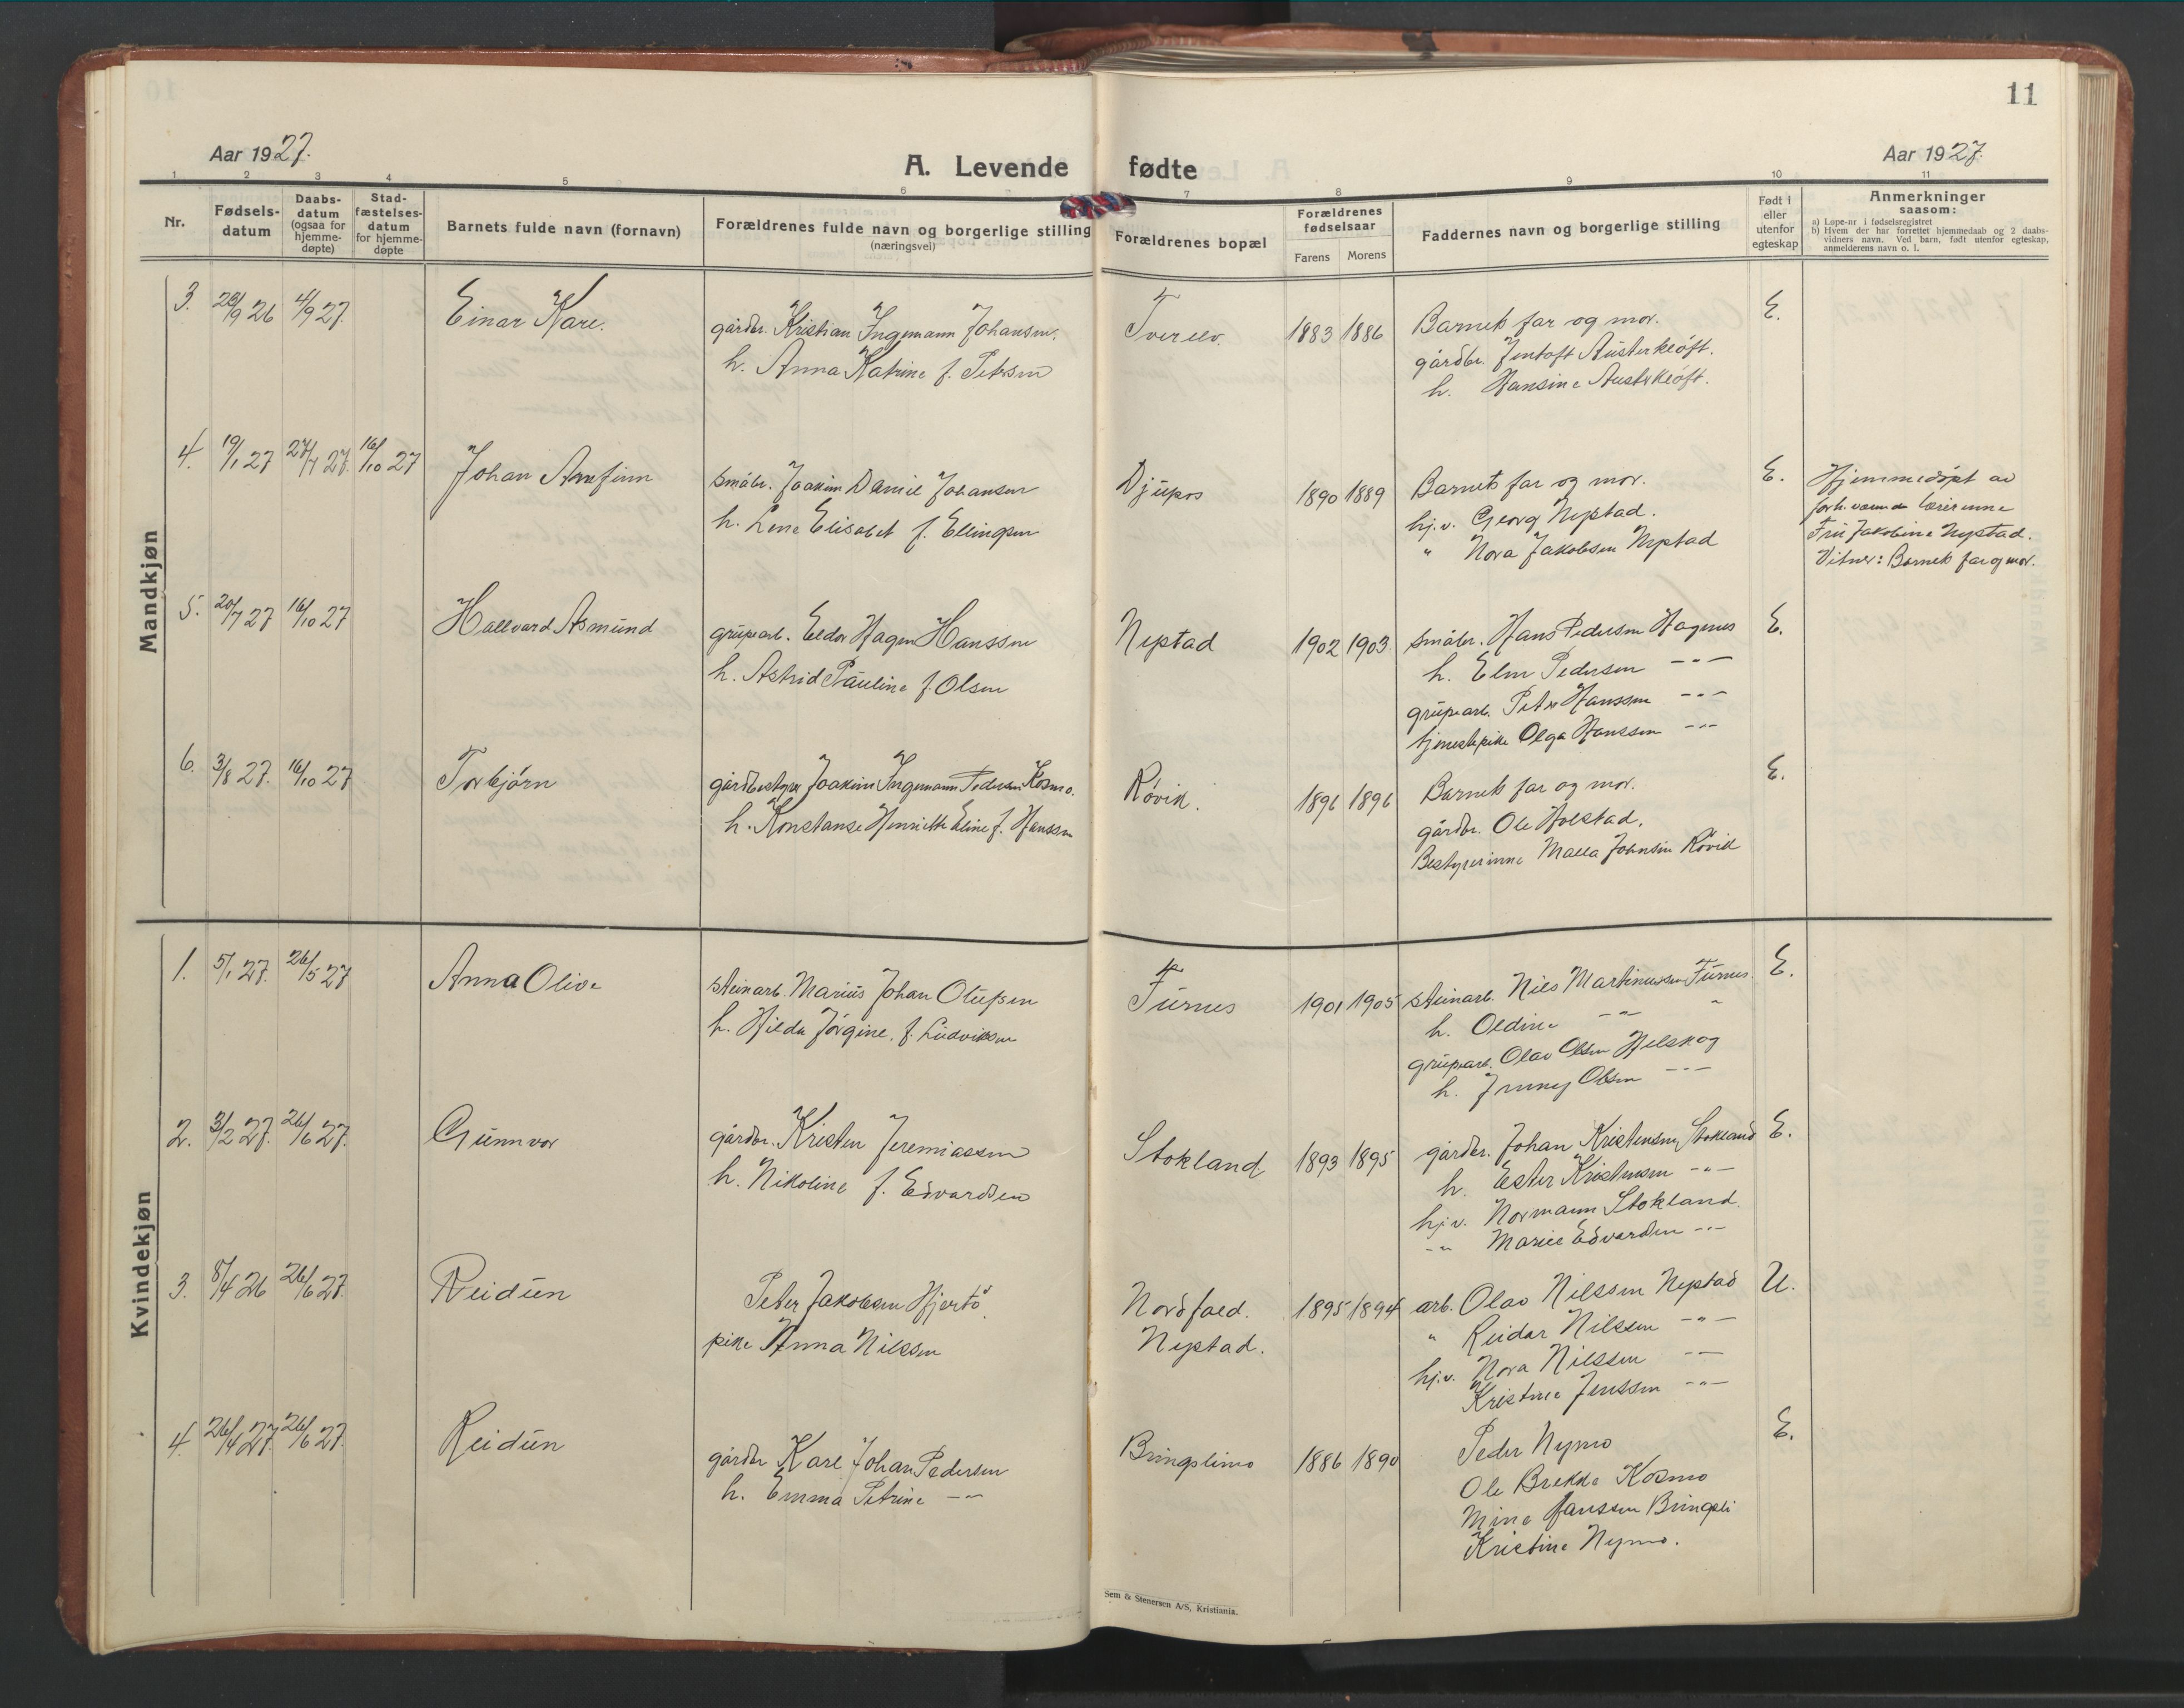 11
Aar 1927.
A. Levende fødte
Aar 1927.
1 2 3 4 5 6 7 8 9 10 11
Nr.
Fødsels-
datum
Daabs-
datum
(ogsaa for
hjemme-
døpte)
Stad-
fæstelses-
datum
for hjemme-
døpte
Barnets fulde navn (fornavn)
Forældrenes fulde navn og borgerlige stilling
(næringsvei)
Forældrenes bopæl
Forældrenes
fødselsaar
Farens Morens
Faddernes navn og borgerlige stilling
Født i
eller
utenfor
egteskap
Anmerkninger
saasom:
a) Løpe-nr i fødselsregistret
b) Hvem der har forrettet hjemmedaab og 2 daabs-
vidners navn. Ved barn, født utenfor egteskap,
anmelderens navn o. l.
Mandkjøn
3. 4/9 27. Einar Kare.
gårdbr. Kristian Ingemann Johansen.
h. Anna Katrine f. Petersen
Tverelv. 1883 1886
Barnets far og mor.
gårdbr. Jentoft Austerkløft.
h. Hansine Austerkløft.
E.
4. 19/1 27 16/10 27 Johan Arnfinn
småbr. Joakim Daniel Johansen
h. Lene Elisabet f. Ellingsen
Djupos 1890 1889
Barnets far og mor.
hj.v. Georg Nystad.
" Nora Jakobsen Nystad
E.
Hjemmedøpt av
forh. værende lærerinne
Fru Jakobine Nystad.
Vitner: Barnets far og mor.
5. 20/7 27 16/10 27 Hallvard Asmund
grubearb. Eldor Hagen Hanssen
h. Astrid Pauline f. Olsen
Nystad 1902 1903
småbr. Hans Pedersen Hagenes
h. Elen Pedersen -"-
grubearb. Peter Hanssen -"-
tjenestepike Olga Hanssen -"-
E.
6. 3/8 27. 16/10 27 Torbjørn
gårdbestyrer Joakim Ingemann Pedersen Kosmo.
h. Konstanse Henriette Eline f. Hanssen
Røvik. 1896 1896
Barnets far og mor.
gårdbr. Ole Holstad.
Bestyrerinne Malla Johnsen Røvik
E.
Kvindekjøn
1. 5/1 27. 26/5 27 Anna Olive
steinarb. Marius Johan Olufsen
h. Hilda Jørgine, f. Ludviksen
Furnes 1901 1905
steinarb. Nils Martinussen Furnes.
h. Oldine -"- "
grubearb. Olav Olsen Hjelskog
h. Jenny Olsen -"-
E.
2. 3/2 27. 26/6 27. Gunnvor
gårdbr. Kristen Jeremiassen
h. Nikoline f. Edvardsen
Stokland 1893 1895
gårdbr. Johan Kristensen, Stokland
h. Ester Kristensen -"-
hj.v. Normann Stokland.
-"- Marie Edvardsen -"-
E.
3. 8/4 26 26/6 27. Reidun
Peter Jakobsen Hjertø.
pike Anna Nilssen
Nordfold.
Nystad.
1895 1894
arb. Olav Nilssen Nystad
" Reidar Nilssen -"-
hj.v. Nora Nilssen -"-
Kristine Jenssen -"-
U.
4. 26/4 27. 26/6 27. Reidun
gårdbr Karl Johan Pedersen
h. Emma Petrine -"-
Bringslimo 1886 1890
Peder Nymo
Ole Brekke Kosmo
Mina Janssen Bringsli
Kristine Nymo.
E.
Sem & Stenersen A/S, Kristiania.